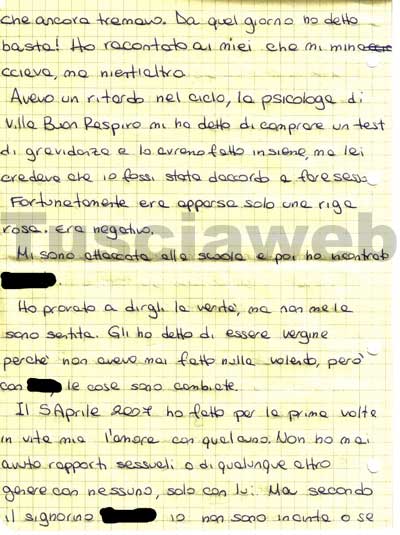 che ancora tremavo. Da quel giorno ho detto
basta! Ho racontato ai miei che mi mina
cciava, ma nient'altro
Avevo un ritardo nel ciclo, la psicologa di
Villa Buon Respiro mi ha detto di comprare un test
di gravidanza e lo avremo fatto insieme, ma lei
credeva che io fossi stata daccordo a fare sesso.
Fortunatamente era apparsa solo una riga
rosa. Era negativo.
Tusciaweb
Mi sono attaccata alla scuola e poi ho incontrato
.
Ho provato a dirgli la verità, ma non me la
sono sentita. Gli ho detto di essere vergine
perchè non avevo mai fatto nulla volendo, però
con , le cose sono cambiate.
Il 5 Aprile 2007 ho fatto per la prima volta
in vita mia l'amore con qualcuno. Non ho mai
avuto rapporti sessuali o di qualunque altro
genere con nessuno, solo con lui. Ma secondo
il signorino io non sono incinta o se